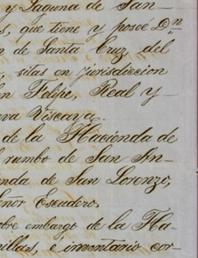 y Laguna de San-
s, que tiene y poseé Dn
n de Santa Cruz del
, sitas en jurisdiccion
an Felipe, Real y
eva Viscaya.
de la Hacienda de
rumbo de San An-
nda de San Lorenzo,
eñor Escudero.
obre embargo de la Ha-
nillas, é imventario cor-